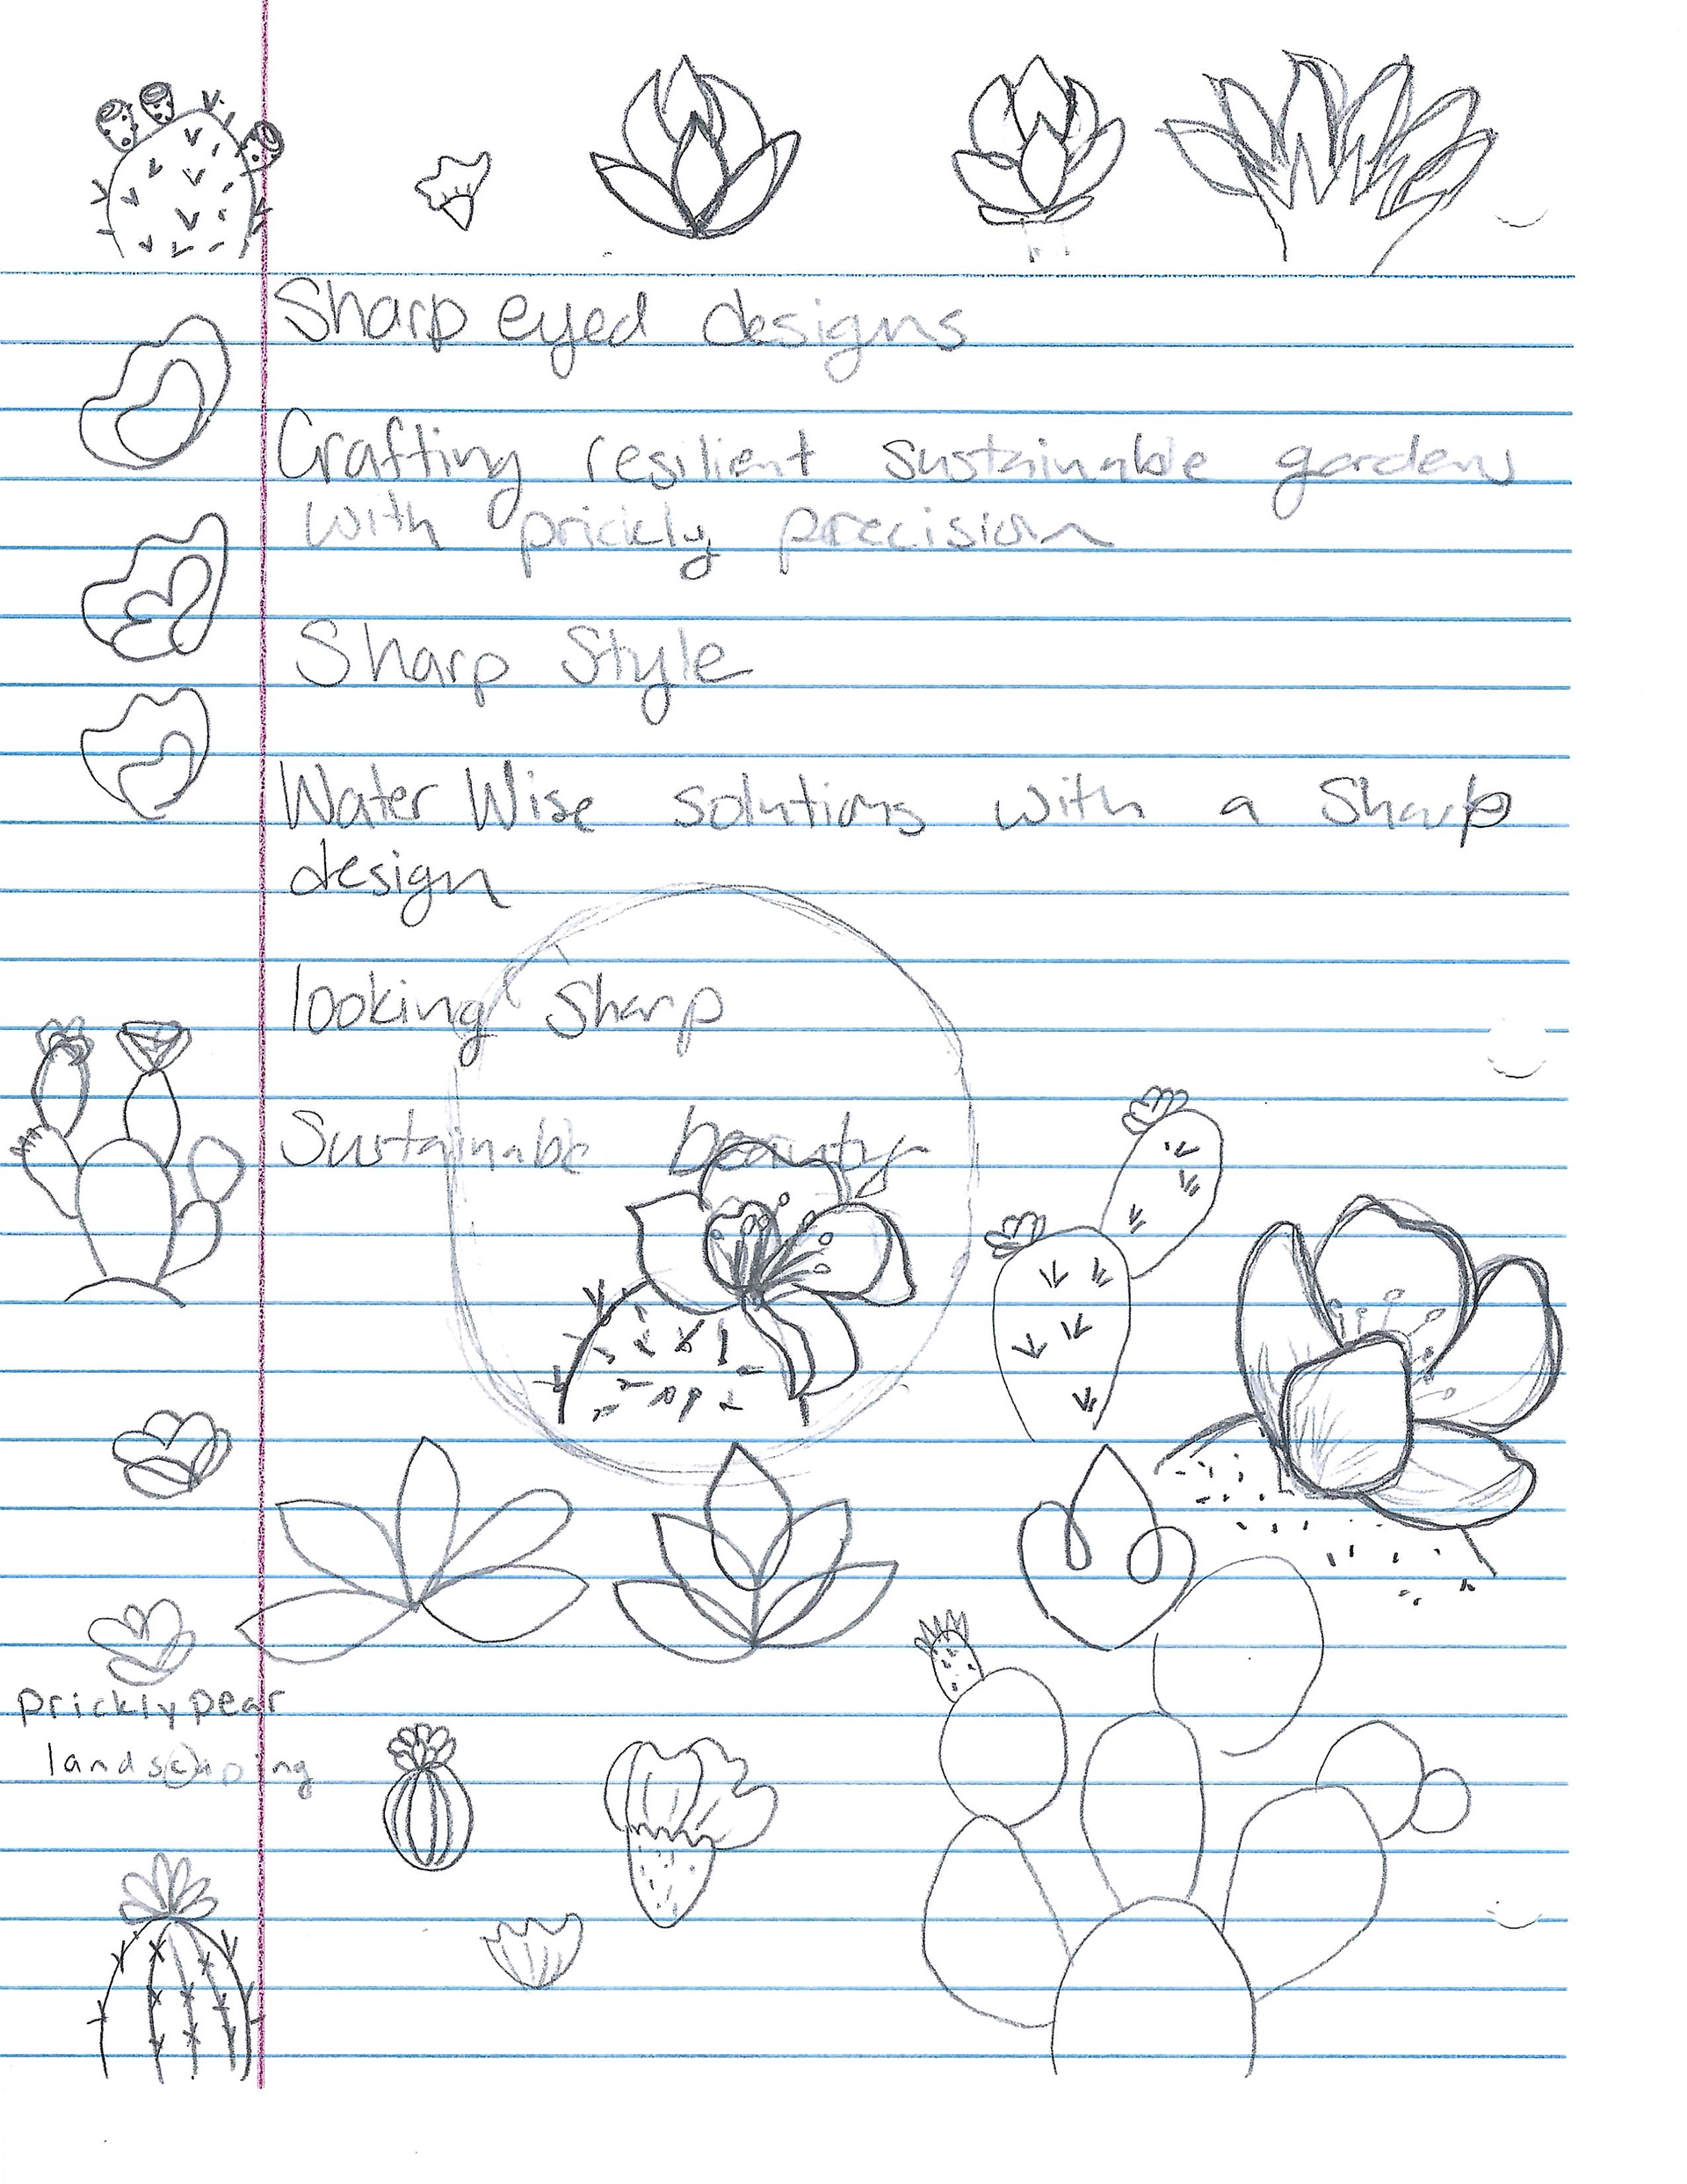 Sharp eyed designs
Crafting resilient sustainable gardens
with prickly precision
Sharp Style
Water Wise solutions with a Sharp
design
looking Sharp
Sustainable beauty
pricklypear
landscaping